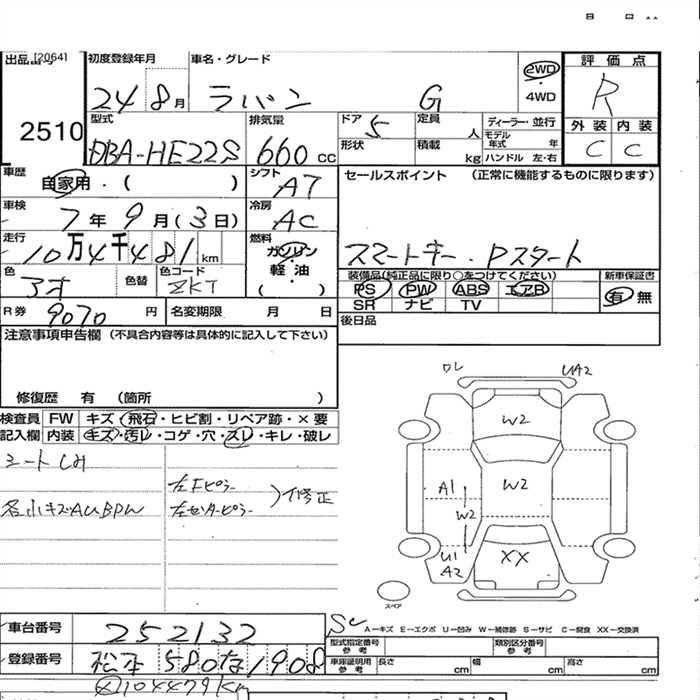 出品番号 [2064] 初度登録年月 車名・グレード 2WD 評価点
24 8月 ラパン G 4WD R
2510 型式 排気量 ドア 5 定員 人 ディーラー・並行 外装 内装
DBA-HE22S 660cc 形状 積載 kg モデル年式 年 ハンドル 左・右 C C
車歴 自家用・( ) シフト AT セールスポイント (正常に機能するものに限ります)
車検 7年9月(3日) 冷房 AC
走行 10万4千481km 燃料 ガソリン・軽油 ( ) スマートキー・Pスタート
色 色替 色コード ZKT 装備品(純正品に限り○をつけてください) 新車保証書
PS PW ABS エアB 有・無
SR ナビ TV
R券 9070円 名変期限 月 日 後日品
注意事項申告欄 (不具合内容等は具体的に記入して下さい)
修復歴 有 (箇所 )
検査員 FW キズ・飛石・ヒビ割・リペア跡・×要
記入欄 内装 キズ・汚レ・コゲ・穴・スレ・キレ・破レ
シートしみ
左Fピラー
左センターピラー )修正
各小キズAUBPW
UA2
W2
A1 W2
W2
U1 XX
A2
スペア
A−キズ E−エクボ U−凹み W−補修跡 S−サビ C−腐食 XX−交換済
車台番号 252132 型式指定番号 参考 類別区分番号 参考
登録番号 松本 580 な 1908 車庫証明用 参考 長さ cm 幅 cm 高さ cm
104479km